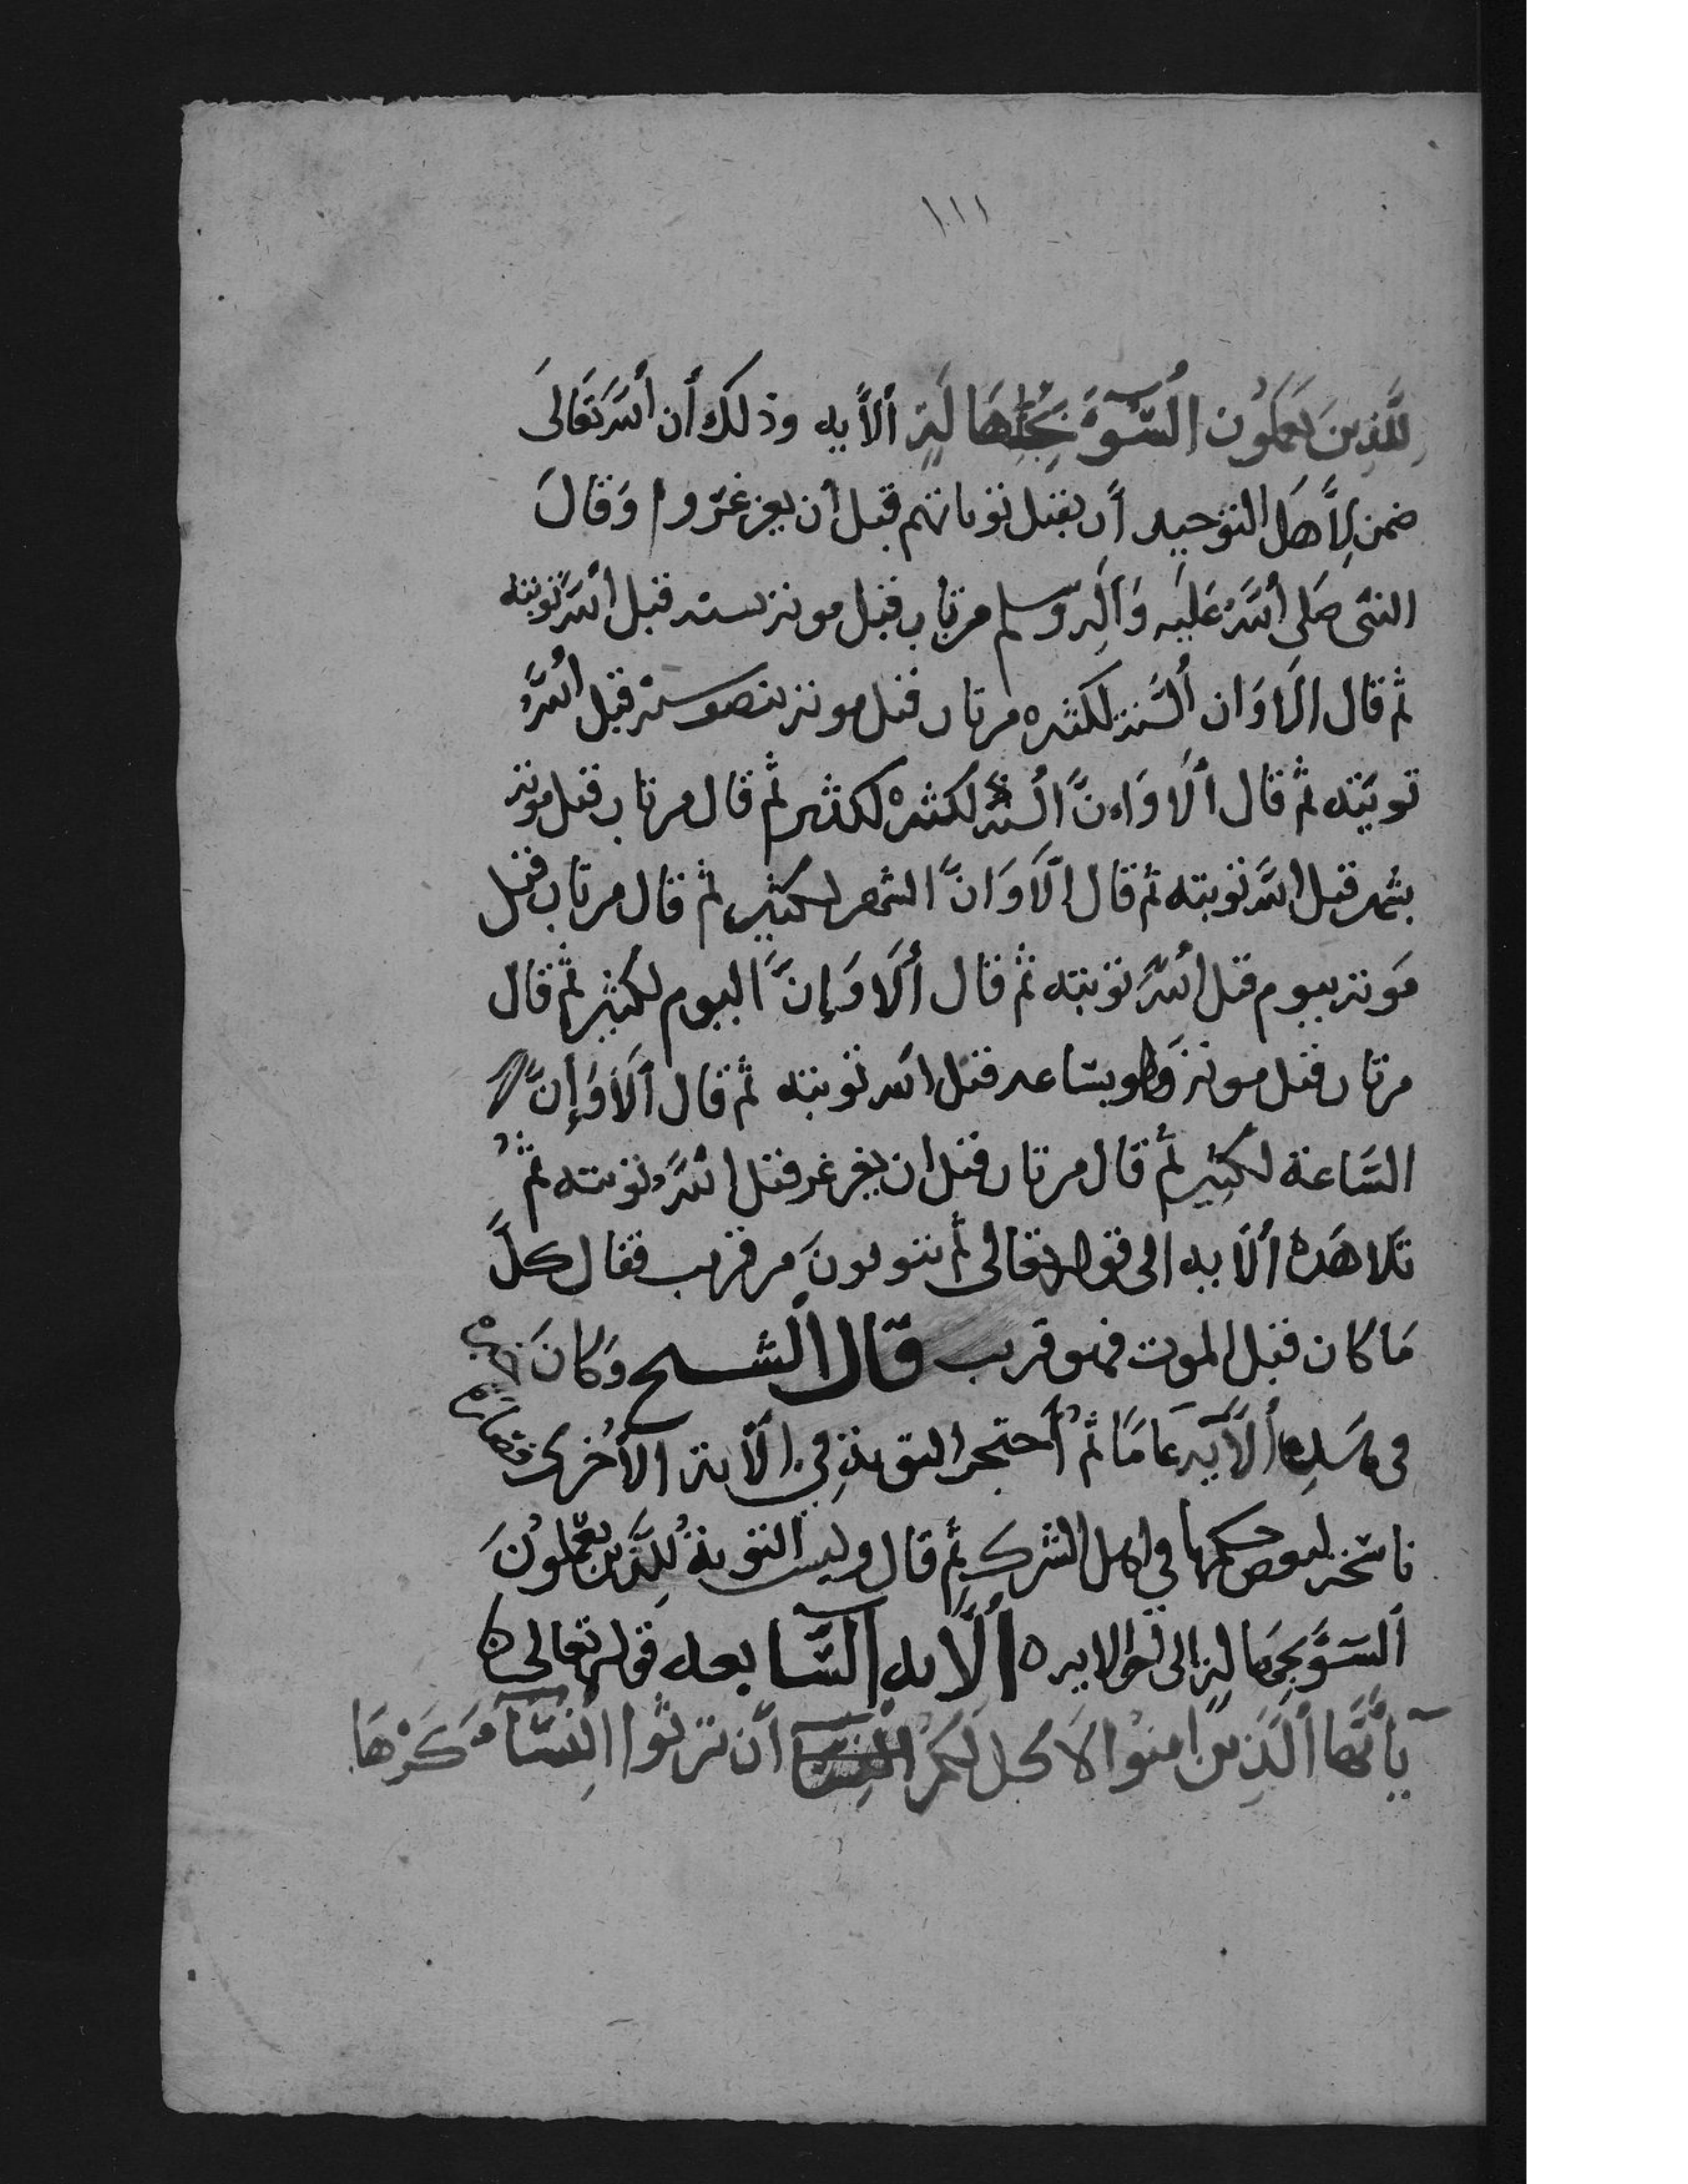 ١١١
لِلَّذِينَ يَعْمَلُون السُّوٓءَ بِجَهَالَةٍ الآيه وذلك أن الله تعالى
ضمن لأهل التوحيد أن يقبل توباتهم قبل أن يغرغروا وقال
النبى صلى الله عليه وآله وسلم من تاب قبل موته بسنه قبل الله توبته
ثم قال الا وان السنة لكثيره من تاب قبل موته بنصف سنة قبل الله
توبته ثم قال ألا وان السنة لكثيره لكثير ثم قال من تاب قبل موته
بشهر قبل الله توبته ثم قال الا وان الشهر لكثير ثم قال من تاب قبل
موته بيوم قبل الله توبته ثم قال ألا وإن اليوم لكثير ثم قال
من تاب قبل موته ولو بساعه قبل الله توبته ثم قال ألا وإن
السّاعة لكثير ثم قال من تاب قبل ان يغرغر قبل الله توبته ثم
تلا هذه الآيه الى قوله تعالى ثم يتوبون من قريب فقال كل
ما كان قبل الموت فهو قريب قال الشيخ وكان
فى هذه الآيه عاما ثم احتجر التوبة في الآية الأخرى
ناسخه لبعض حكمها في اهل الشرك ثم قال وليست التوبة للذين يعملون
السوء بجهالة إلى آخر الايه ه الآيه السّابعه قوله تعالى
يأيّها الَّذِينَ امنوا لا يحل لكم أن ترثوا النِّسَآءَ كَرْهًا